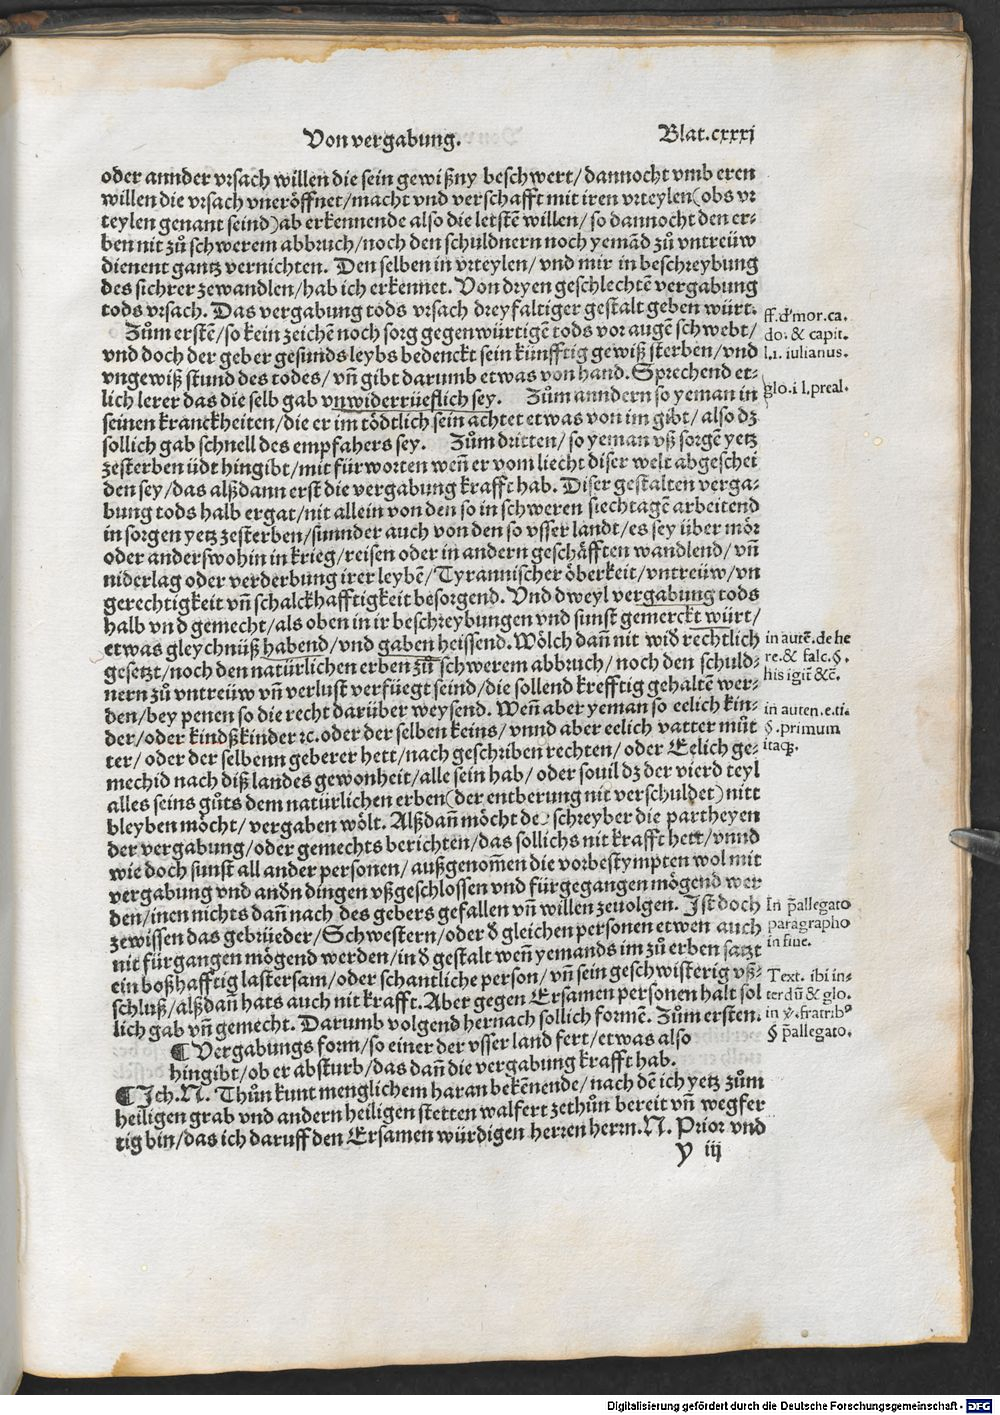 Von vergabung.
Blat.cxxxj
oder annder vrsach willen die sein gewißny beschwert/dannocht vmb eren
willen die vrsach vneröffnet/macht vnd verschafft mit iren vrteylen(obs vr
teylen genant seind)ab erkennende also die letstē willen/so dannocht den er⸗
ben nit zů schwerem abbruch/noch den schuldnern noch yemād zů vntreüw
dienent gantz vernichten. Den selben in vrteylen/vnd mir in beschreybung
des sichrer zewandlen/hab ich erkennet. Von dryen geschlechtē vergabung
tods vrsach. Das vergabung tods vrsach dreyfaltiger gestalt geben würt.
Zům erstē/so kein zeichē noch sorg gegenwürtigē tods vor augē schwebt/
vnd doch der geber gesunds leybs bedenckt sein künfftig gewiß sterben/vnd
vngewiß stund des todes/vn̄ gibt darumb etwas von hand. Sprechend et⸗
lich lerer das die selb gab vnwiderrüeflich sey. Zům anndern so yeman in
seinen kranckheiten/die er im tödtlich sein achtet etwas von im gibt/also dz
sollich gab schnell des empfahers sey. Zům dritten/so yeman vß sorgē yetz
zesterben üdt hingibt/mit fürworten wen̄ er vom liecht diser welt abgeschei
den sey/das alßdann erst die vergabung krafft hab. Diser gestalten verga⸗
bung tods halb ergat/nit allein von den so in schweren siechtagē arbeitend
in sorgen yetz zesterben/sunnder auch von den so vsser landt/es sey über mör
oder anderswohin in krieg/reisen oder in andern geschäfften wandlend/vn̄
niderlag oder verderbung irer leybē/Tyrannischer öberkeit/vntreüw/vn
gerechtigkeit vn̄ schalckhafftigkeit besorgend. Vnd dweyl vergabung tods
halb vnd gemecht/als oben in ir beschreybungen vnd sunst gemerckt würt/
etwas gleychnüß habend/vnd gaben heissend. Wölch dan̄ nit wiđ rechtlich
gesetzt/noch den natürlichen erben zů schwerem abbruch/noch den schuld⸗
nern zů vntreüw vn̄ verlust verfüegt seind/die sollend krefftig gehaltē wer⸗
den/bey penen so die recht darüber weysend. Wen̄ aber yeman so eelich kin⸗
der/oder kindßkinder ꝛc. oder der selben keins/vnnd aber eelich vatter můt
ter/oder der selbenn geberer hett/nach geschriben rechten/oder Eelich ge⸗
mechid nach diß landes gewonheit/alle sein hab/oder souil dz der vierd teyl
alles seins gůts dem natürlichen erben(der entberung nit verschuldet)nitt
bleyben möcht/vergaben wölt. Alßdan̄ möcht de schreyber die partheyen
der vergabung/oder gemechts berichten/das sollichs nit krafft hett/vnnd
wie doch sunst all ander personen/außgenom̄en die vorbestympten wol mit
vergabung vnd anđn dingen vßgeschlossen vnd fürgegangen mögend wer
den/inen nichts dan̄ nach des gebers gefallen vn̄ willen zeuolgen. Ist doch
zewissen das gebrüeder/Schwestern/oder đ gleichen personen etwen auch
nit fürgangen mögend werden/in đ gestalt wen̄ yemands im zů erben satzt
ein boßhafftig lastersam/oder schantliche person/vn̄ sein geschwisterig vß⸗
schluß/alßdan̄ hats auch nit krafft. Aber gegen Ersamen personen halt sol
lich gab vn̄ gemecht. Darumb volgend hernach sollich formē. Zům ersten.
¶ Vergabungs form/so einer der vsser land fert/etwas also
hingibt/ob er absturb/das dan̄ die vergabung krafft hab.
¶ Ich. N. Thůn kunt menglichem haran bekēnende/nach dē ich yetz zům
heiligen grab vnd andern heiligen stetten walfert zethůn bereit vn̄ wegfer
tig bin/das ich daruff den Ersamen würdigen herren herrn. N. Prior vnd
y iij
ff. d' mor. ca.
do. & capit.
l.1. iulianus.
glo. i l. preal.
in autē. de he
re. & falc. §.
his igit̄ &c̄.
in auten. e. ti.
§. primum
itaqꝫ.
In p̄allegato
paragrapho
in fiue.
Text. ibi in⸗
terdū & glo.
in ꝟ. fratribꝰ
§ p̄allegato.
Digitalisierung gefördert durch die Deutsche Forschungsgemeinschaft - DFG